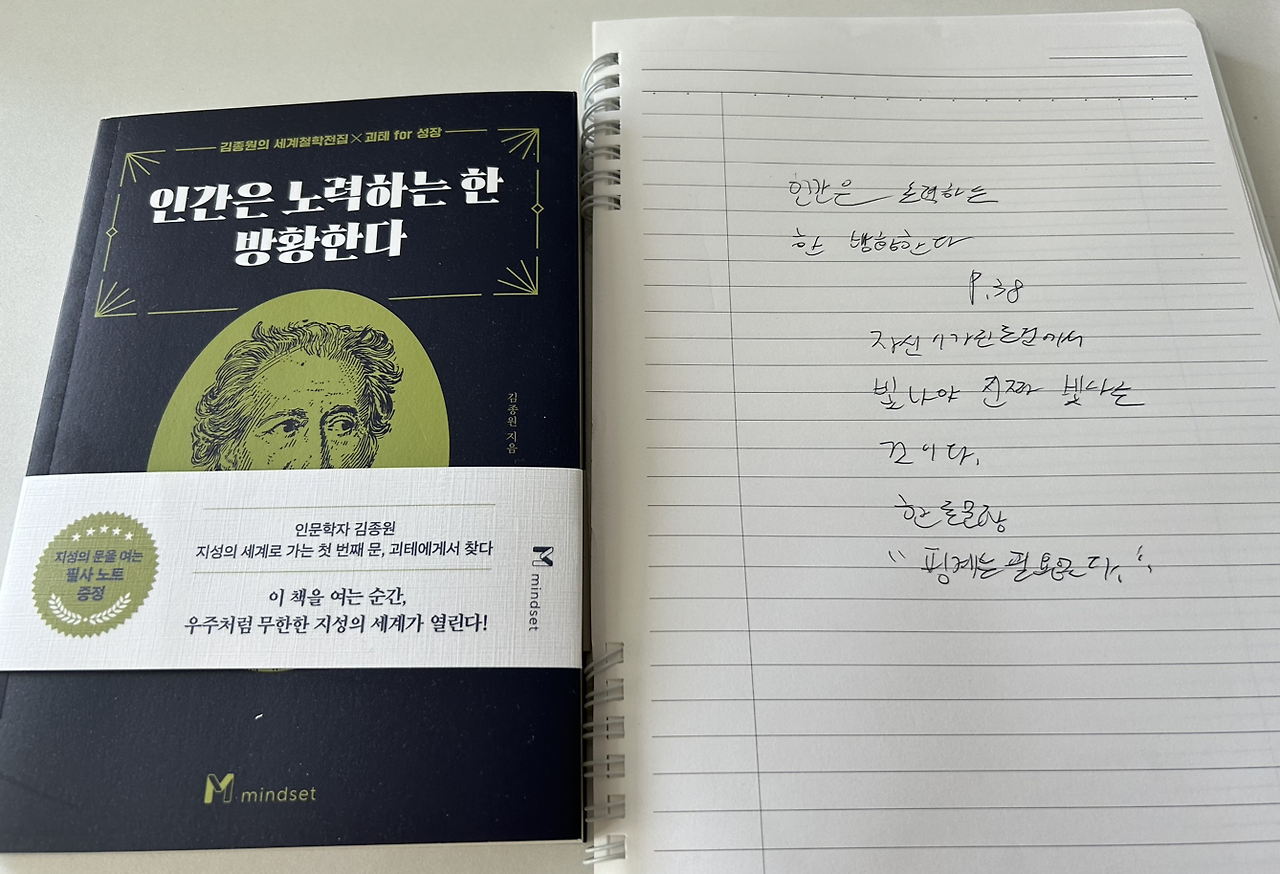 김종원의 세계철학전집×괴테 for 성장
인간은 노력하는 한
방황한다
김종원 지음
지성의 문을 여는
필사 노트
증정
인문학자 김종원
지성의 세계로 가는 첫 번째 문, 괴테에게서 찾다
이 책을 여는 순간,
우주처럼 무한한 지성의 세계가 열린다!
mindset
mindset
인간은 노력하는
한 방황한다
P.38
자신
빛나야 진짜 빛나는
것이다.
한
"핑계는 필요